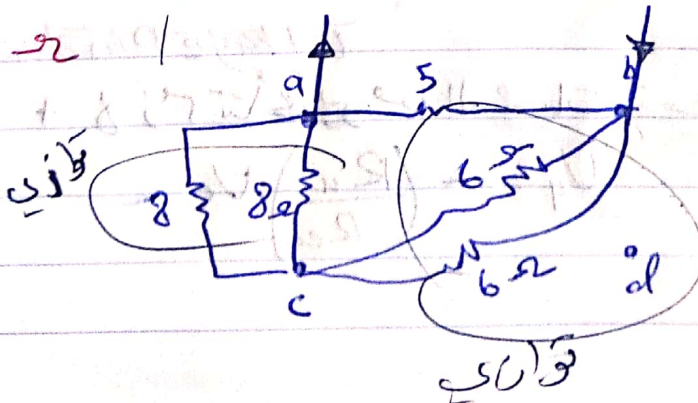 a
5
b
توازي
8
8Ω
6Ω
6Ω
c
d
توازي